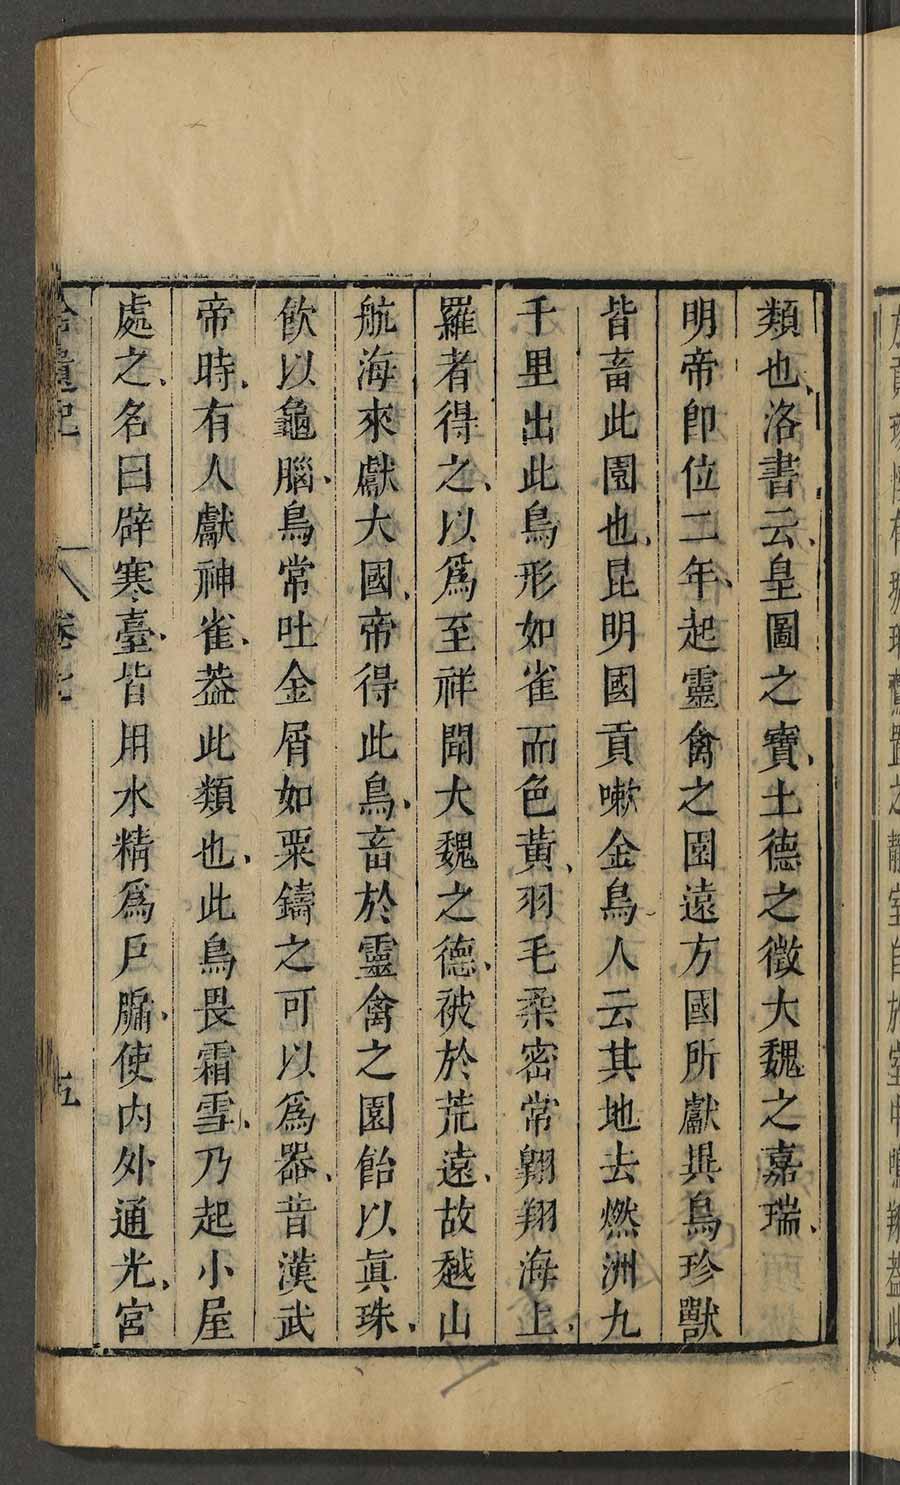 類也洛書云皇圖之寶土德之徵大魏之嘉瑞
明帝卽位二年起靈禽之園遠方國所獻異鳥珍獸
皆畜此園也昆明國貢嗽金鳥人云其地去燃洲九
千里出此鳥形如雀而色黄羽毛柔密常翱翔海上
羅者得之以爲至祥聞大魏之德被於荒遠故越山
航海來獻大國帝得此鳥畜於靈禽之園飴以眞珠
飲以龜腦鳥常吐金屑如粟鑄之可以爲器昔漢武
帝時有人獻神雀葢此類也此鳥畏霜雪乃起小屋
處之名曰辟寒臺皆用水精爲戸牖使内外通光宮
拾遺記
卷七
五